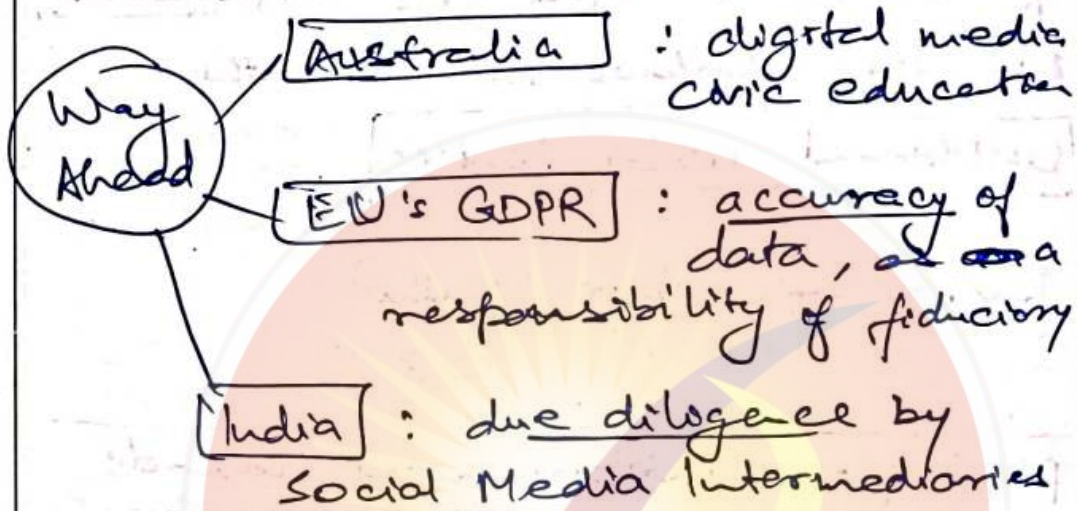 Way
Ahead
Australia : digital media
civic education
EU's GDPR : accuracy of
data, a
responsibility of fiduciary
India : due diligence by
Social Media Intermediaries